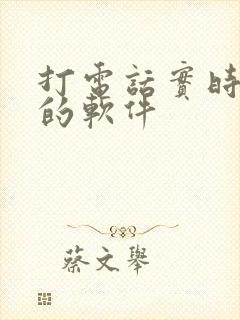 打電話實時
的軟件
蔡文舉